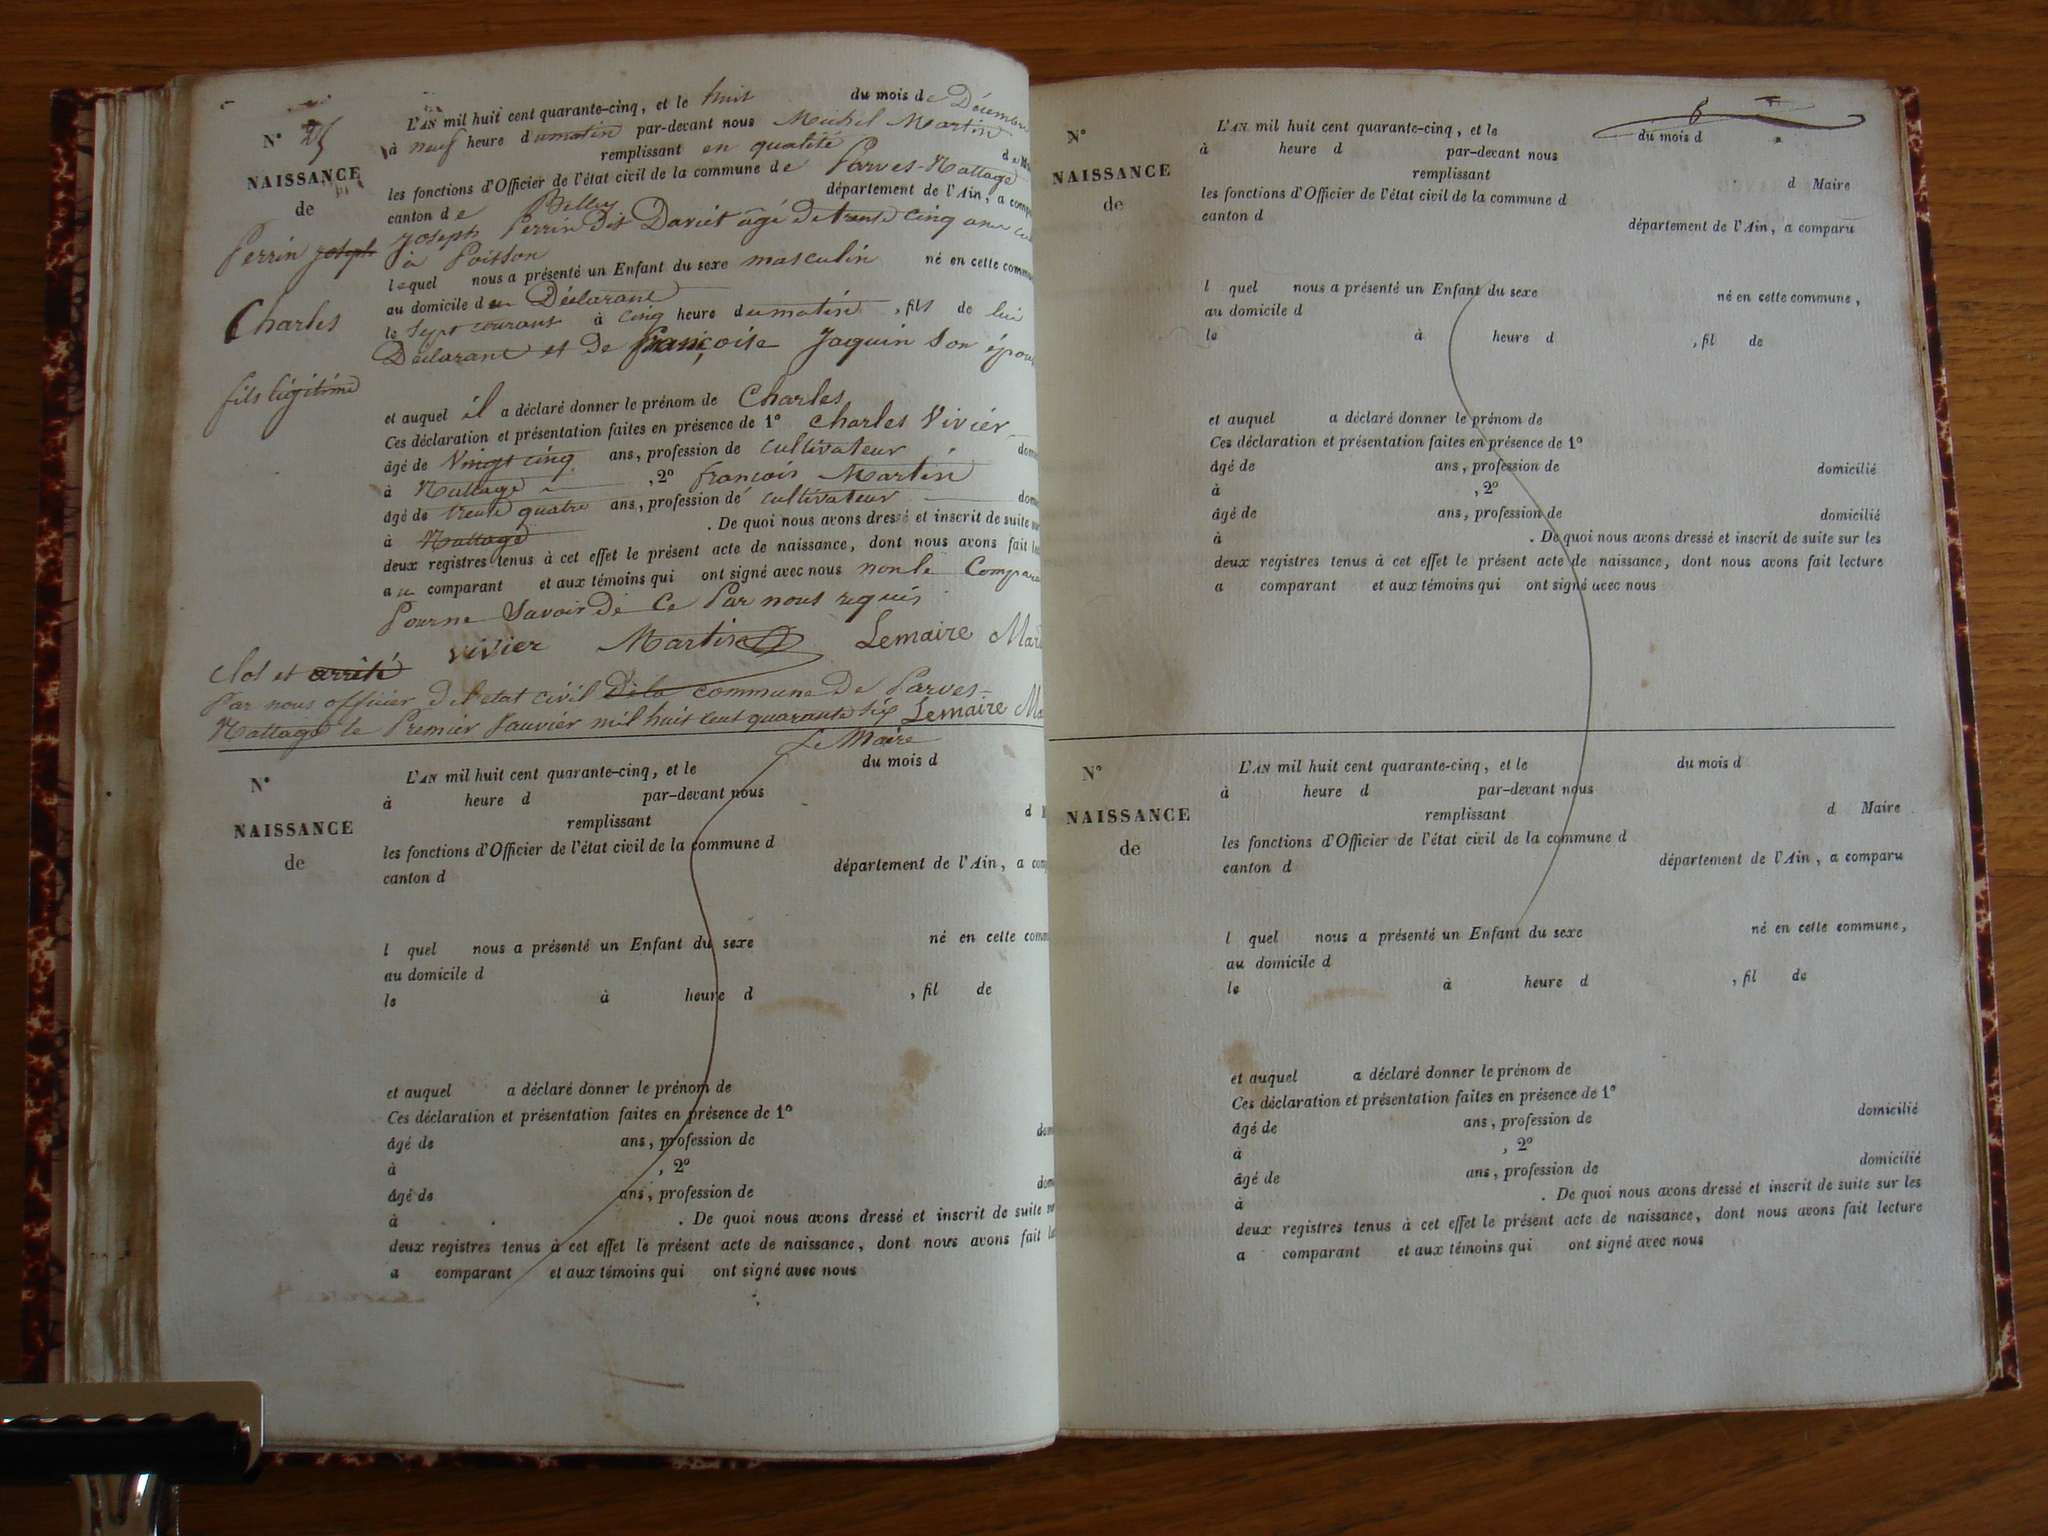 N° 25
NAISSANCE
de
Perrin Joseph
Charles
fils légitime
L'AN mil huit cent quarante-cinq, et le huit du mois de Décembre
à neuf heure du matin par-devant nous Michel Martin
remplissant en qualité de M
les fonctions d'Officier de l'état civil de la commune de Parves-Nattage
canton de Belley département de l'Ain, a comp
Joseph Perrin dit Dariet âgé de trente cinq ans
à Poisson
lequel nous a présenté un Enfant du sexe masculin né en cette commu
au domicile du Déclarant
le sept courant à cinq heure du matin, fils de lui
Déclarant et de françoise Jaquin son épou
et auquel il a déclaré donner le prénom de Charles
Ces déclaration et présentation faites en présence de 1° Charles Vivier
âgé de Vingt cinq ans, profession de cultivateur dom
à Nattage, 2° françois Martin
âgé de trente quatre ans, profession de cultivateur dom
à Nattage. De quoi nous avons dressé et inscrit de suite sur
deux registres tenus à cet effet le présent acte de naissance, dont nous avons fait le
au comparant et aux témoins qui ont signé avec nous non le Compara
Pour ne Savoir de Ce Par nous requis
Vivier Martin Lemaire Mar
Clos et arrêté
Par nous officier de l'etat civil de la commune de Parves-
Nattage le Premier Janvier mil huit cent quarante six Lemaire Ma
Le Maire
N°
NAISSANCE
de
L'AN mil huit cent quarante-cinq, et le du mois d
à heure d par-devant nous
remplissant d M
les fonctions d'Officier de l'état civil de la commune d
canton d département de l'Ain, a com
l quel nous a présenté un Enfant du sexe né en cette comm
au domicile d
le à heure d , fil de
et auquel a déclaré donner le prénom de
Ces déclaration et présentation faites en présence de 1°
âgé de ans, profession de dom
à , 2°
âgé de ans, profession de dom
à . De quoi nous avons dressé et inscrit de suite sur
deux registres tenus à cet effet le présent acte de naissance, dont nous avons fait le
a comparant et aux témoins qui ont signé avec nous
6
N°
NAISSANCE
de
L'AN mil huit cent quarante-cinq, et le du mois d
à heure d par-devant nous
remplissant d Maire
les fonctions d'Officier de l'état civil de la commune d
canton d département de l'Ain, a comparu
l quel nous a présenté un Enfant du sexe né en cette commune,
au domicile d
le à heure d , fil de
et auquel a déclaré donner le prénom de
Ces déclaration et présentation faites en présence de 1°
âgé de ans, profession de domicilié
à , 2°
âgé de ans, profession de domicilié
à . De quoi nous avons dressé et inscrit de suite sur les
deux registres tenus à cet effet le présent acte de naissance, dont nous avons fait lecture
a comparant et aux témoins qui ont signé avec nous
N°
NAISSANCE
de
L'AN mil huit cent quarante-cinq, et le du mois d
à heure d par-devant nous
remplissant d Maire
les fonctions d'Officier de l'état civil de la commune d
canton d département de l'Ain, a comparu
l quel nous a présenté un Enfant du sexe né en cette commune,
au domicile d
le à heure d , fil de
et auquel a déclaré donner le prénom de
Ces déclaration et présentation faites en présence de 1°
âgé de ans, profession de domicilié
à , 2°
âgé de ans, profession de domicilié
à . De quoi nous avons dressé et inscrit de suite sur les
deux registres tenus à cet effet le présent acte de naissance, dont nous avons fait lecture
a comparant et aux témoins qui ont signé avec nous